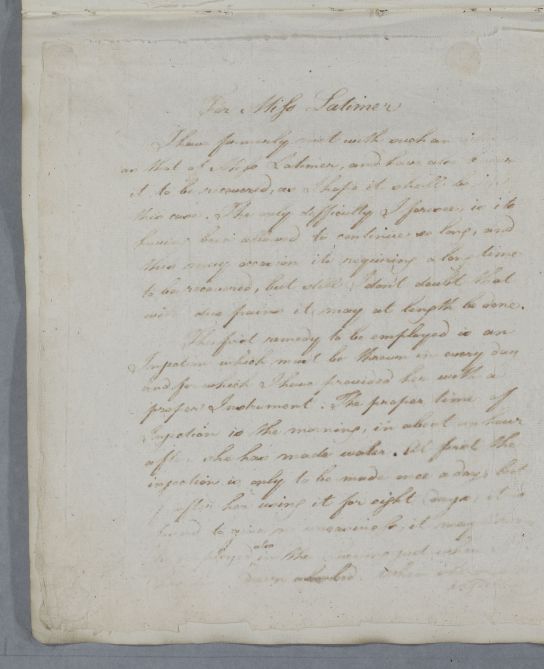 For Miss Latimer
I have formerly met with such an
as that of Miss Latimer, and have also
it to be recovered, as I hope it shall be in
this case. The only difficulty I foresee, is its
having been allowed to continue so long, and
this may occasion its requiring a long time
to be recovered, but still I don't doubt that
with due pains it may at length be done.
The first remedy to be employed is an
Injection which must be thrown in every day
and for which I have provided her with a
proper Instrument. The proper time of
Injection is the morning, in about an hour
after she has made water. At first the
injection is only to be made once a day, but
if after her using it for eight days, it is
found to give no uneasiness, it may
also in the
down when